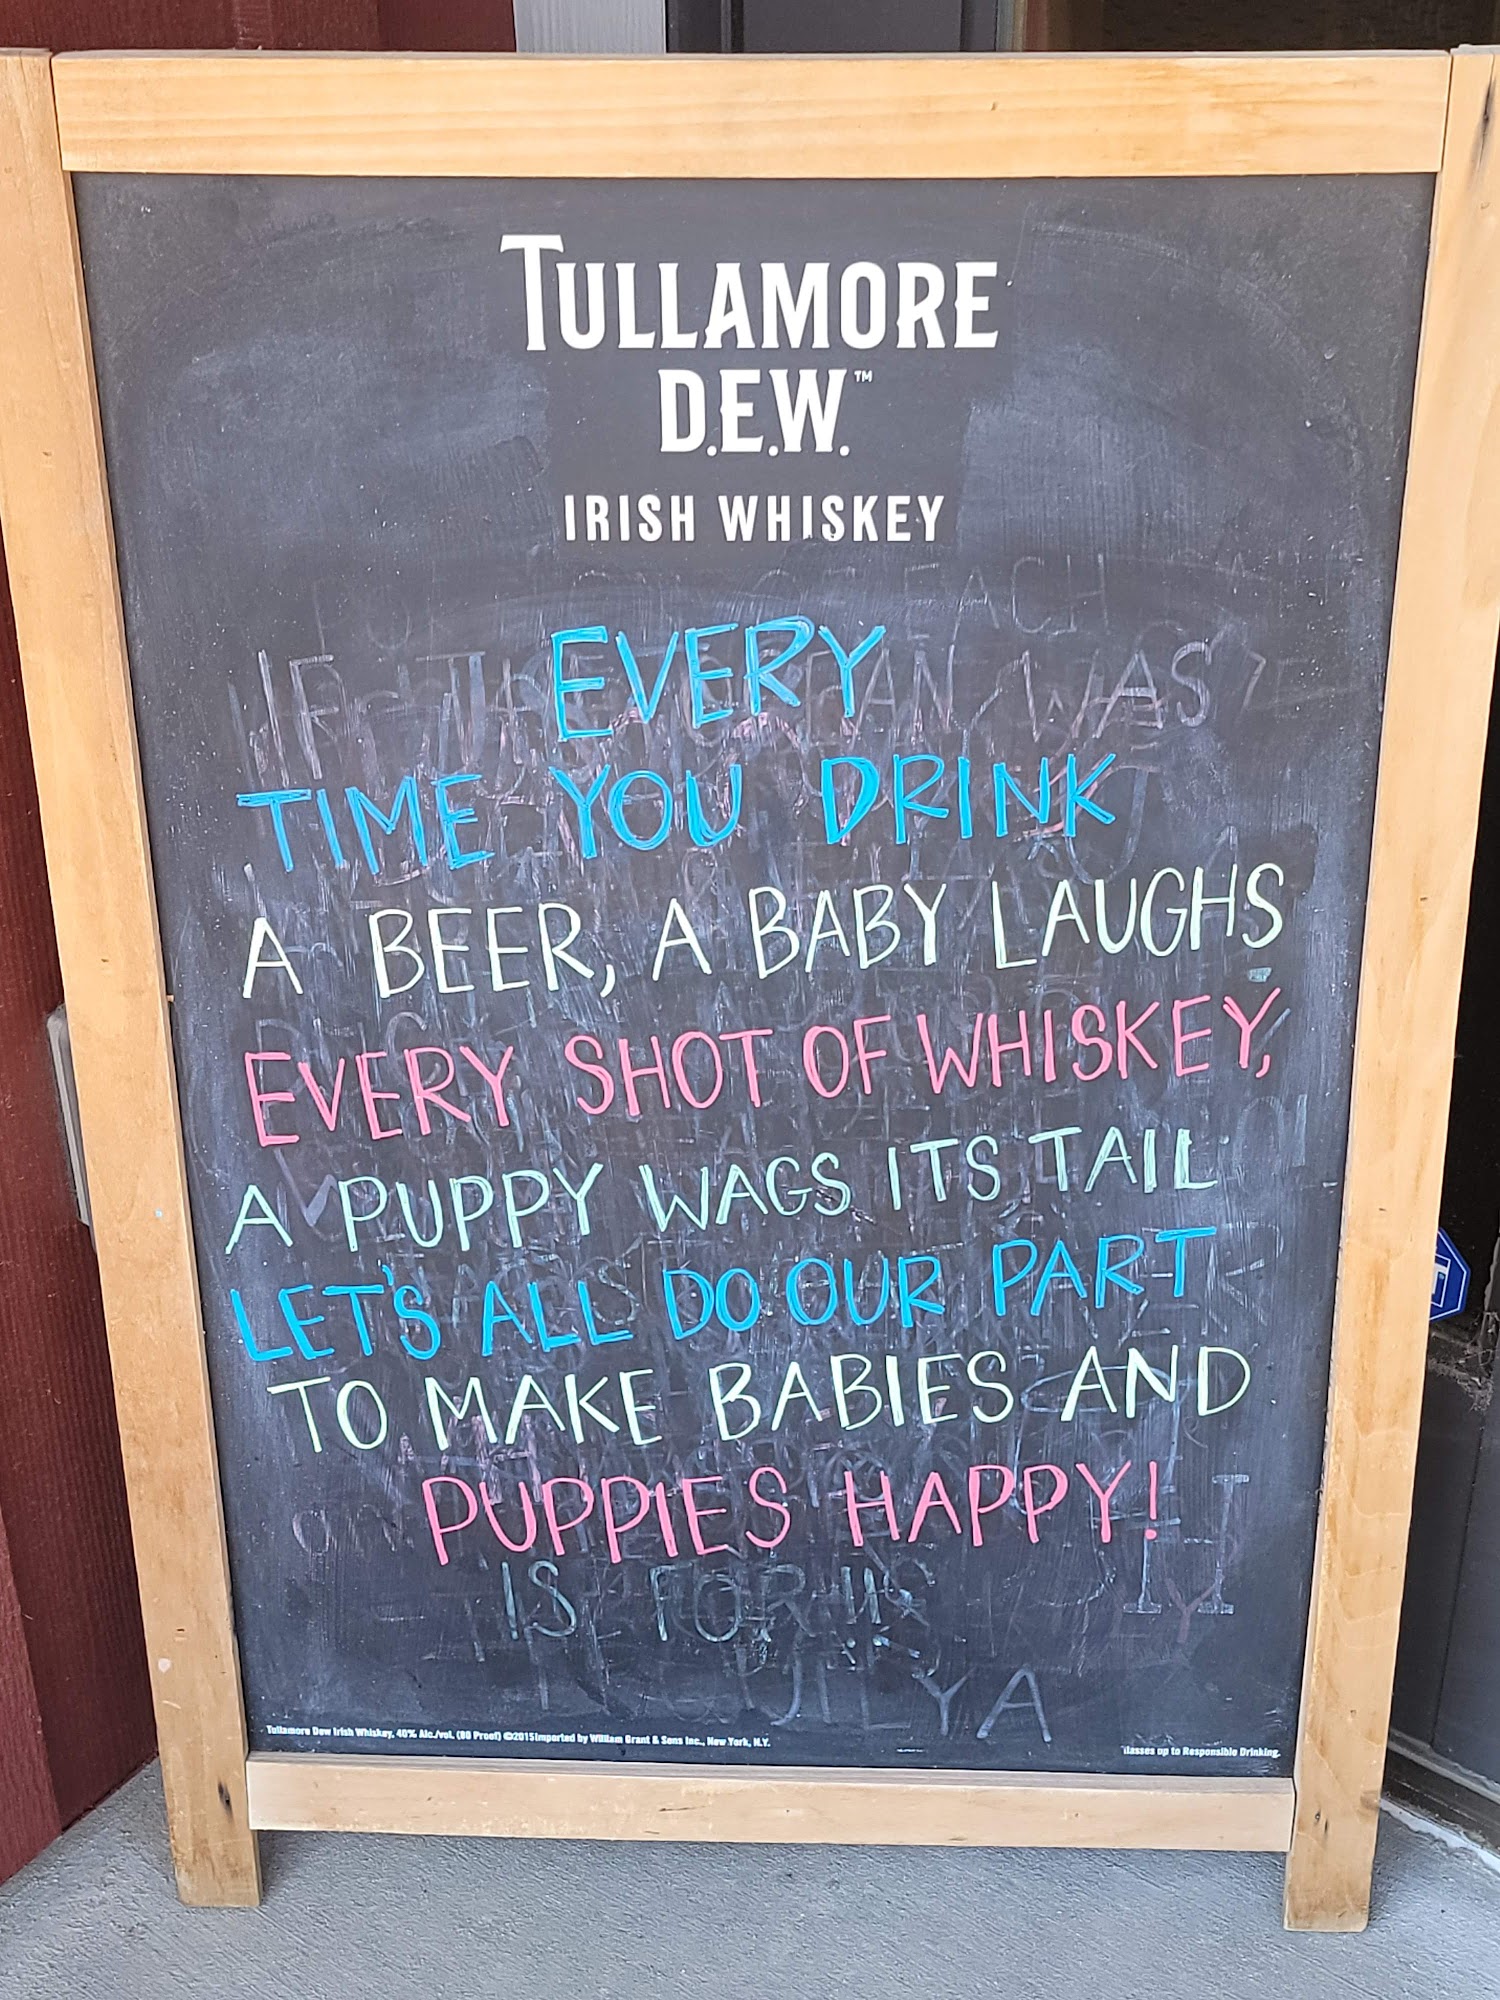 TULLAMORE
D.E.W.™
IRISH WHISKEY
EACH
IF THE OCEAN WAS
EVERY
TIME YOU DRINK
A BEER, A BABY LAUGHS
EVERY SHOT OF WHISKEY,
A PUPPY WAGS ITS TAIL
LET'S ALL DO OUR PART
TO MAKE BABIES AND
PUPPIES HAPPY!
IS FOR
Tullamore Dew Irish Whiskey, 40% Alc./vol. (80 Proof) ©2015 Imported by William Grant & Sons Inc., New York, N.Y.
lasses up to Responsible Drinking.